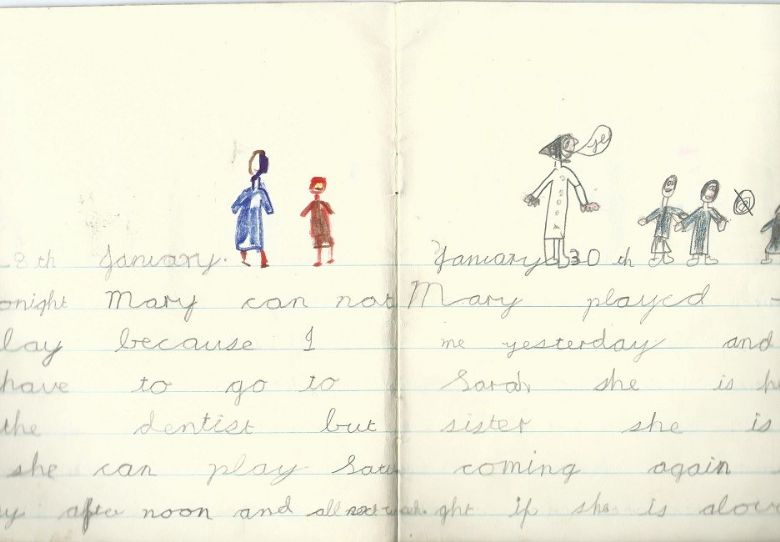 8th January.
onight Mary can not
lay because I
have to go to
the dentist but
she can play Satu
y after noon and all next week.
yes
January 30 th
Mary played
me yesterday and
Sarah she is h
sister she is
coming again
ght if she is alow